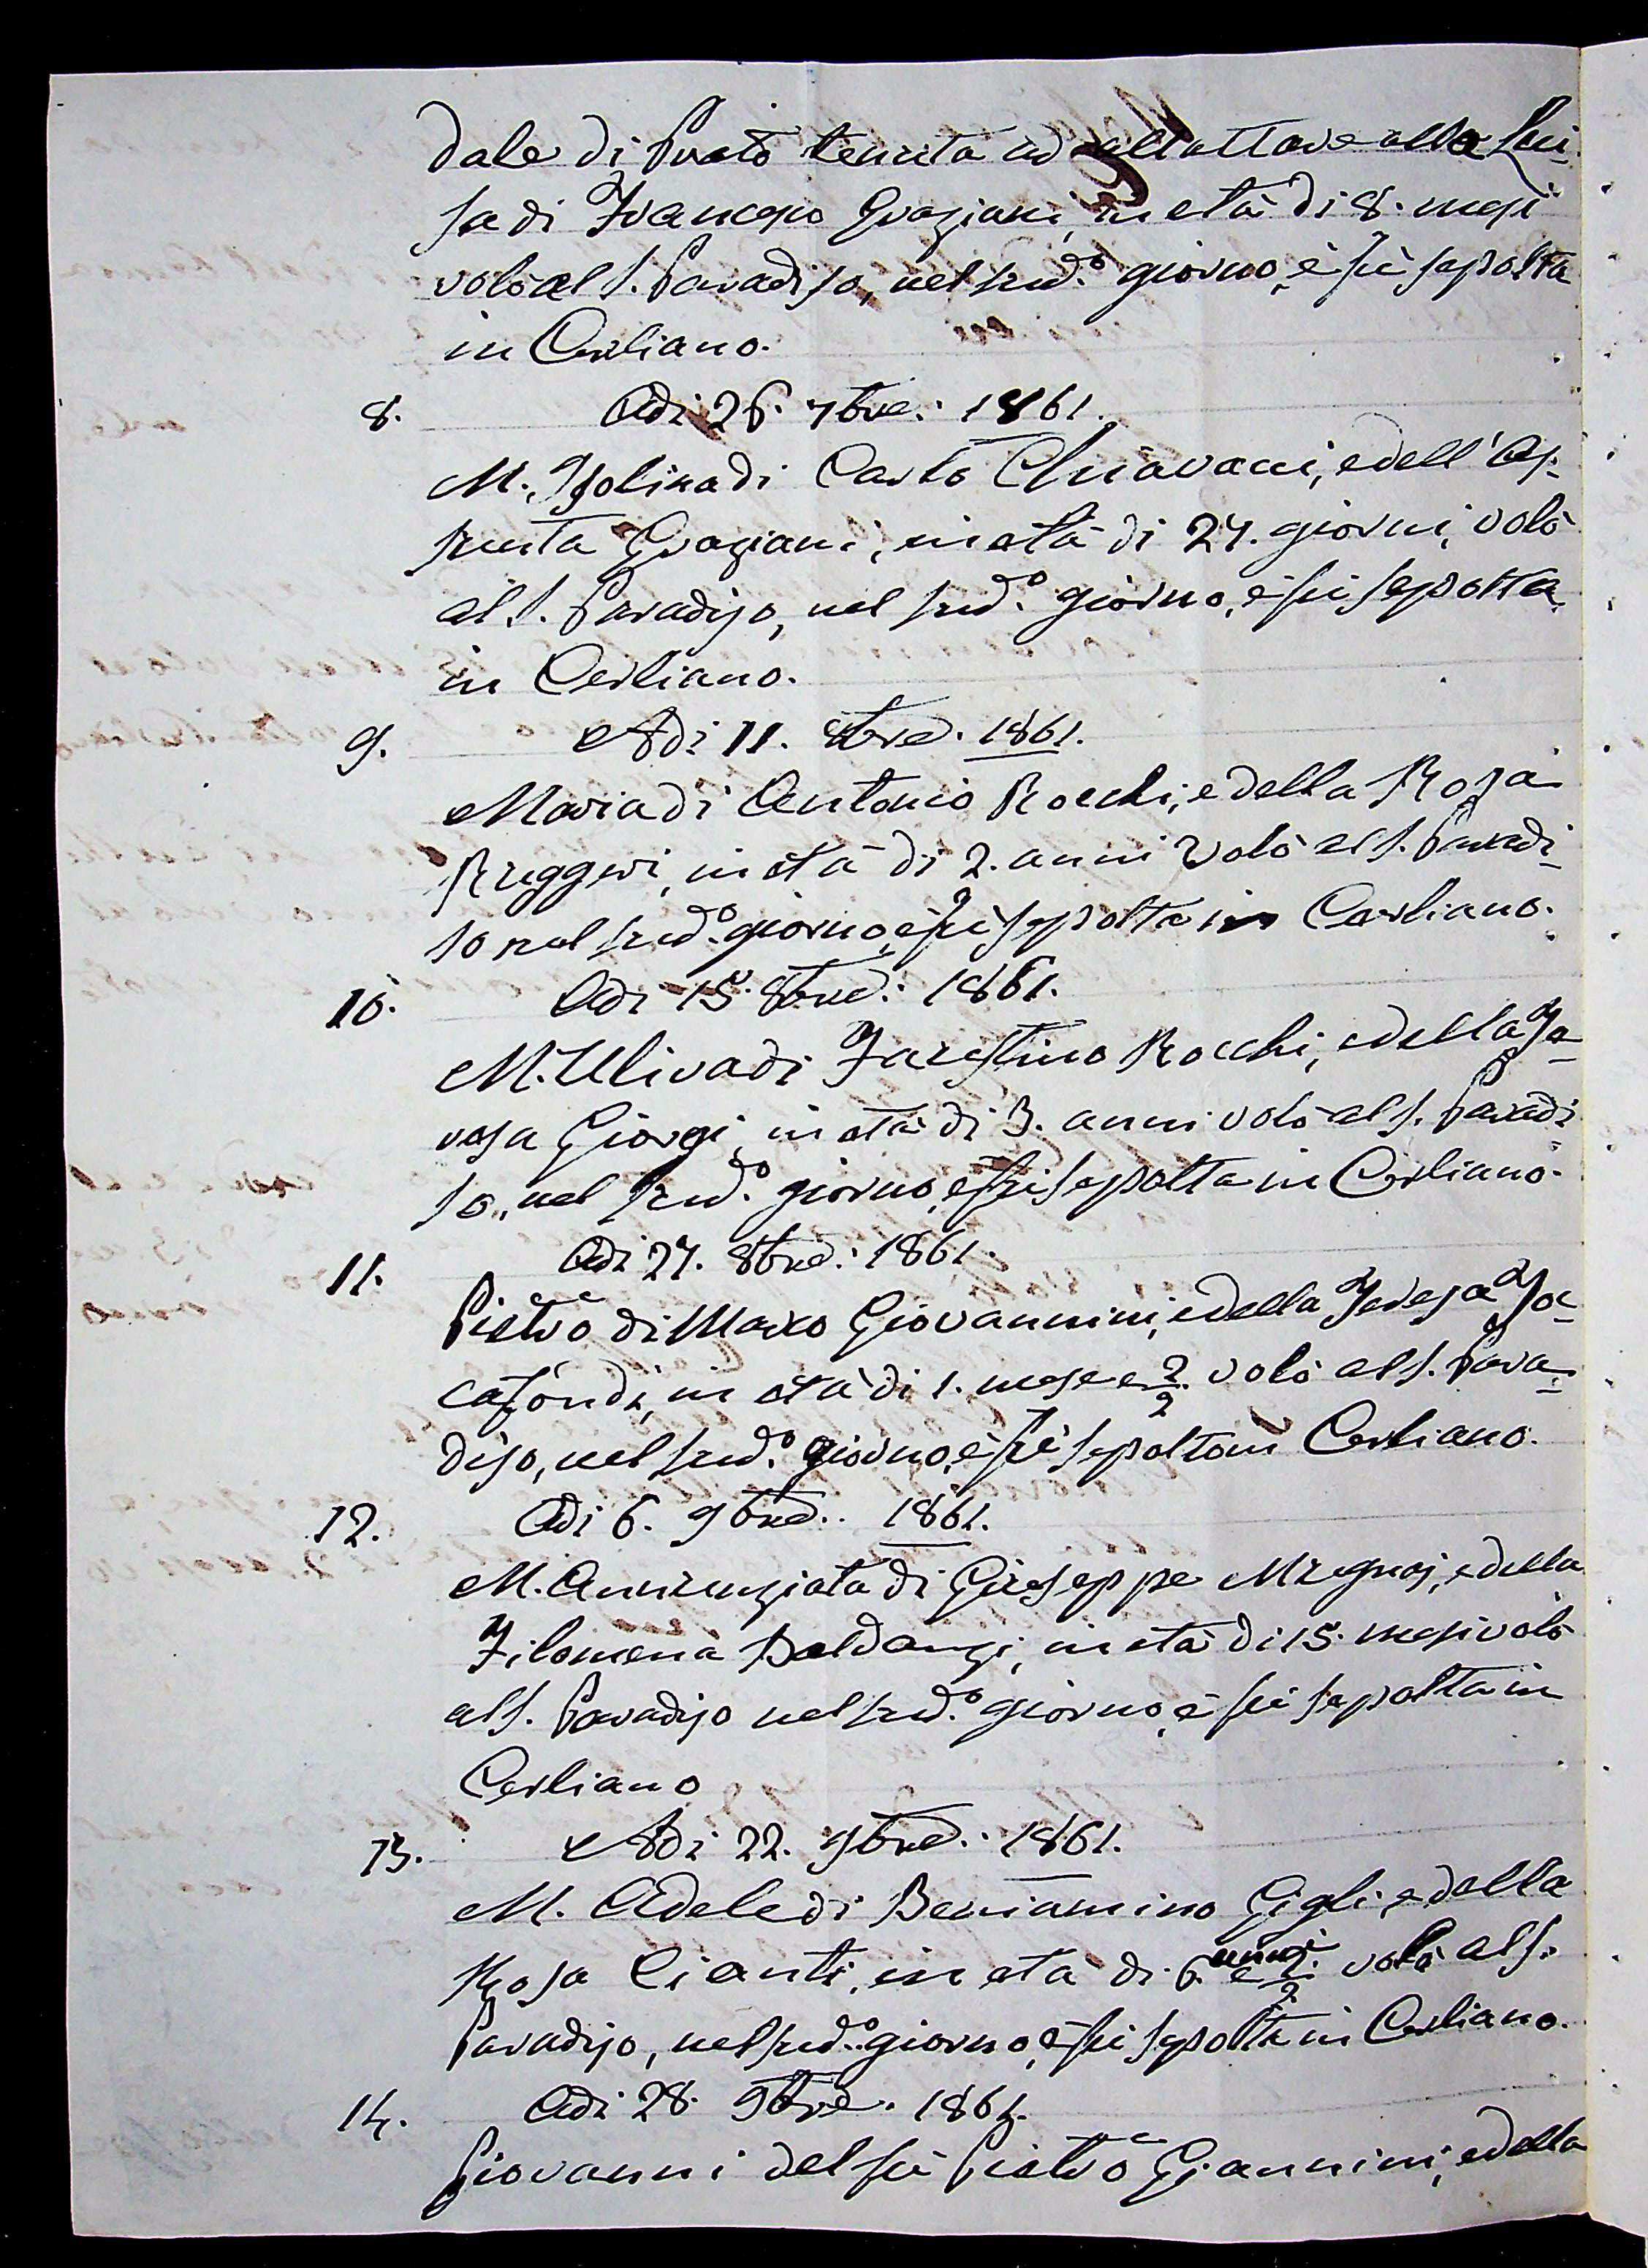 dale di Prato tenuta ad allattare alla Lui-
sa di Francesco Graziani, in età di 8. mesi
volò al S. Paradiso, nel sud.º giorno, è fù sepolta
in Cerliano.
8. Adi 26. 7bre: 1861.
M. Isolina di Carlo Chiavacci, e dell'As-
sunta Graziani, in età di 27. giorni, volò
al S. Paradiso, nel sud.º giorno, è fù sepolta
in Cerliano.
9. Adi 11. 8bre. 1861.
Maria di Antonio Rocchi, e della Rosa
Ruggeri, in età di 2. anni volò al S. Paradi-
so nel sud.º giorno, è fù sepolta in Cerliano.
10. Adi 15. 8bre: 1861.
M. Uliva di Faustino Rocchi, e della Te-
resa Giorgi, in età di 3. anni volò al S. Paradi
so, nel sud.º giorno, è fù sepolta in Cerliano.
11. Adi 27. 8bre: 1861.
Pietro di Marco Giovannini, e della Teresa
in età di 1. mese e ½. volò al S. Para-
diso, nel sud.º giorno, è fù sepolto in Cerliano.
12. Adi 6. 9bre.. 1861.
M. Annunziata di Giuseppe Mugnaj, e della
Filomena Baldanzi, in età di 15. mesi volò
al S. Paradiso nel sud.º giorno, è fù sepolta in
Cerliano
13. Adi 22. 9bre.: 1861.
M. Adele di Beniamino Gigli, e della
Rosa Cianti, in età di 6. anni e ½. volò al S.
Paradiso, nel sud.º giorno, è fù sepolta in Cerliano.
14. Adi 28. 9bre. 1861.
Giovanni del fù Pietro Giannini, e della